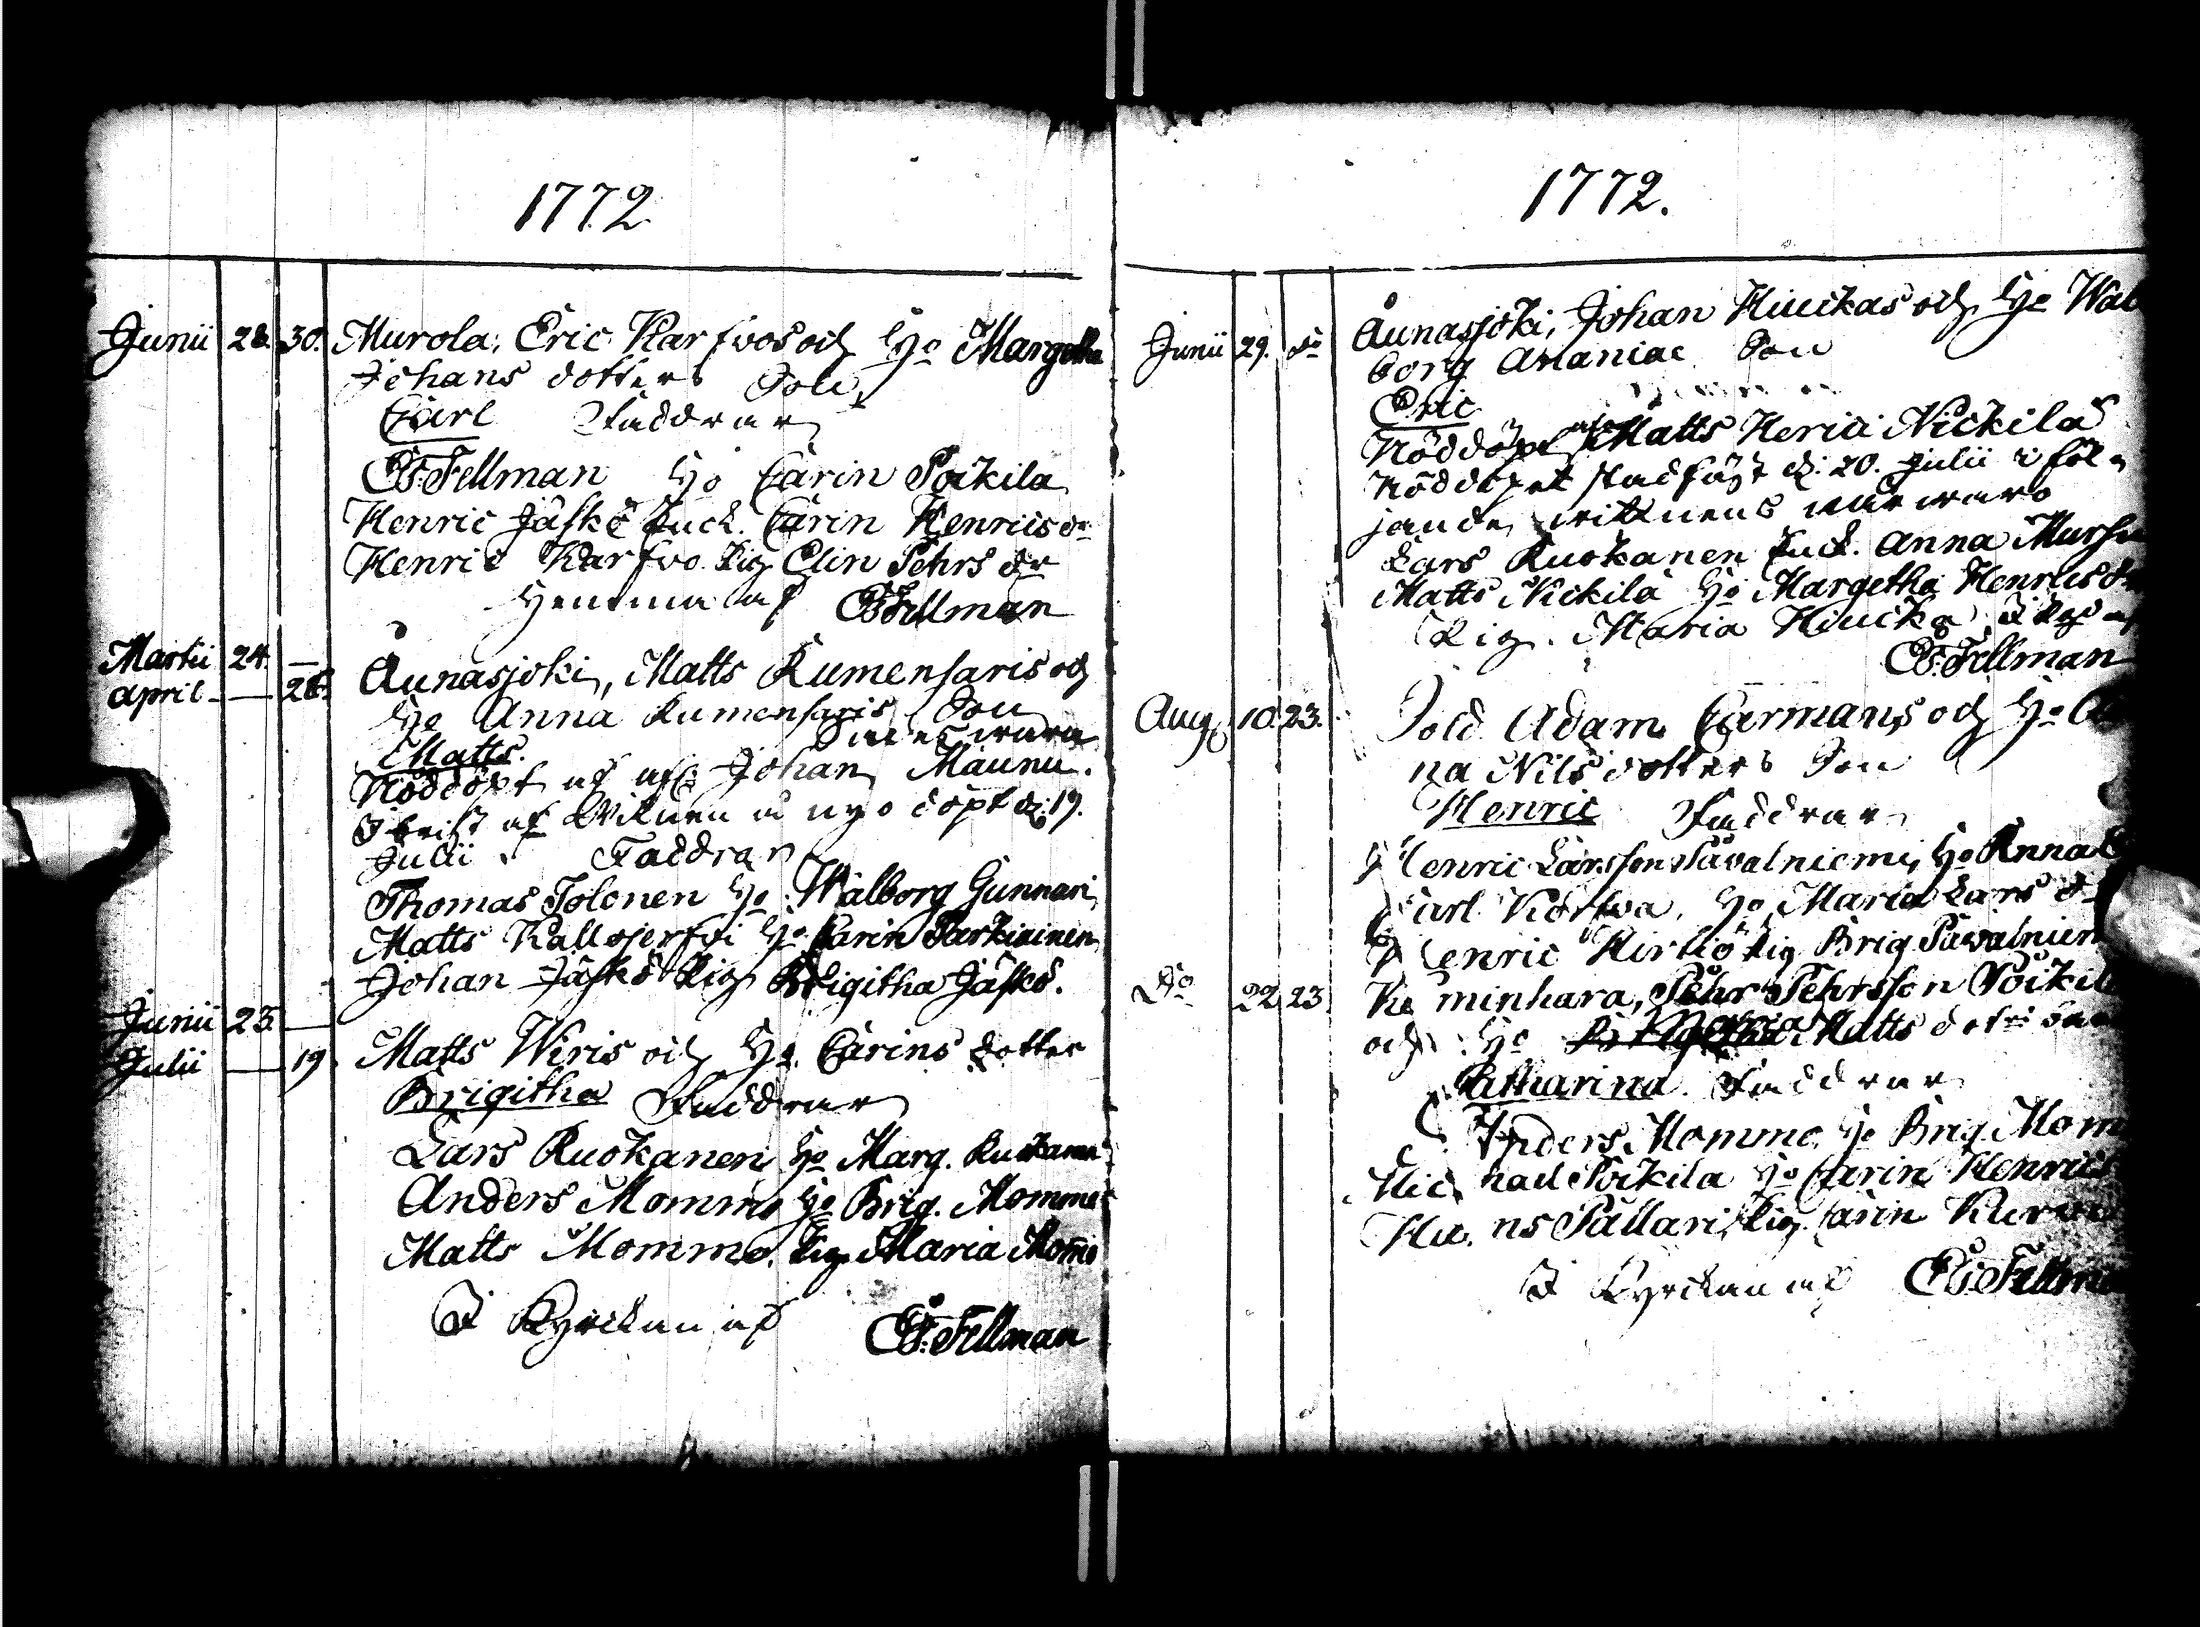 1772
Junii 28. 30. Murola, Eric Karfvos och Ho Margetha
Johans dotters Son
Carl Faddrar
E: Fellman Ho Carin Poikila
Henric Jäskö Enck. Carin Henricsdr
Henric Karfvo Pig. Elin Pehrs dr
Hemma af E: Fellman
Martii 24. —
April — 26. Aunasjoki, Matts Rumensaris och
Ho Anna Rumensaris Son
Matts.
Nöddöpt af Johan Maunu.
I brist af Witnen å nyo döpt d: 19.
Julii Faddrar
Thomas Tolonen Ho Walborg Gunnari
Matts Kallojerfvi Ho Carin Parkiainen
Johan Jäskö Pig. Brigitha Jäskö.
Junii 25. —
Julii — 19 Matts Wiris och Ho Carins dotter
Brigitha Faddrar
Lars Ruokanen Ho Marg. Ruokanen
Anders Mommo Ho Brig. Mommo
Matts Mommo. Pig. Maria Momo
I Kyrckan af E: Fellman
1772.
Junii 29. do Aunasjoki, Johan Hiuckas och Ho Wal
borg Ananiae Son
Eric
Nöddöpt af Matts Henrici Nickilä
Nöddopet stadfäst d: 20. Julii i föl-
jande wittnens närwaro
Lars Ruokanen Enck. Anna
Matts Nickilä Ho Margetha Henricsdr
Pig. Maria Hiucka
E: Fellman
Aug. 10. 23. Sold. Adam Carmans och Ho
na Nils dotters Son
Henric Faddrar
Henric Larsson Säwalniemi, Ho Anna
Carl Korfva, Ho Maria Lars dr
Henric Kirliö Pig. Brig. Säwalniem
Do 22 23 Keminhara, Pehr Pehrsson Poikil
och Ho Maria Matts dotters
Catharina. Faddrar
Anders Mommo Ho Brig. Mom
Michael Poikila Ho Carin Henrics
Hans Pallari, Pig. Carin
I Kyrckan af E: Fellman